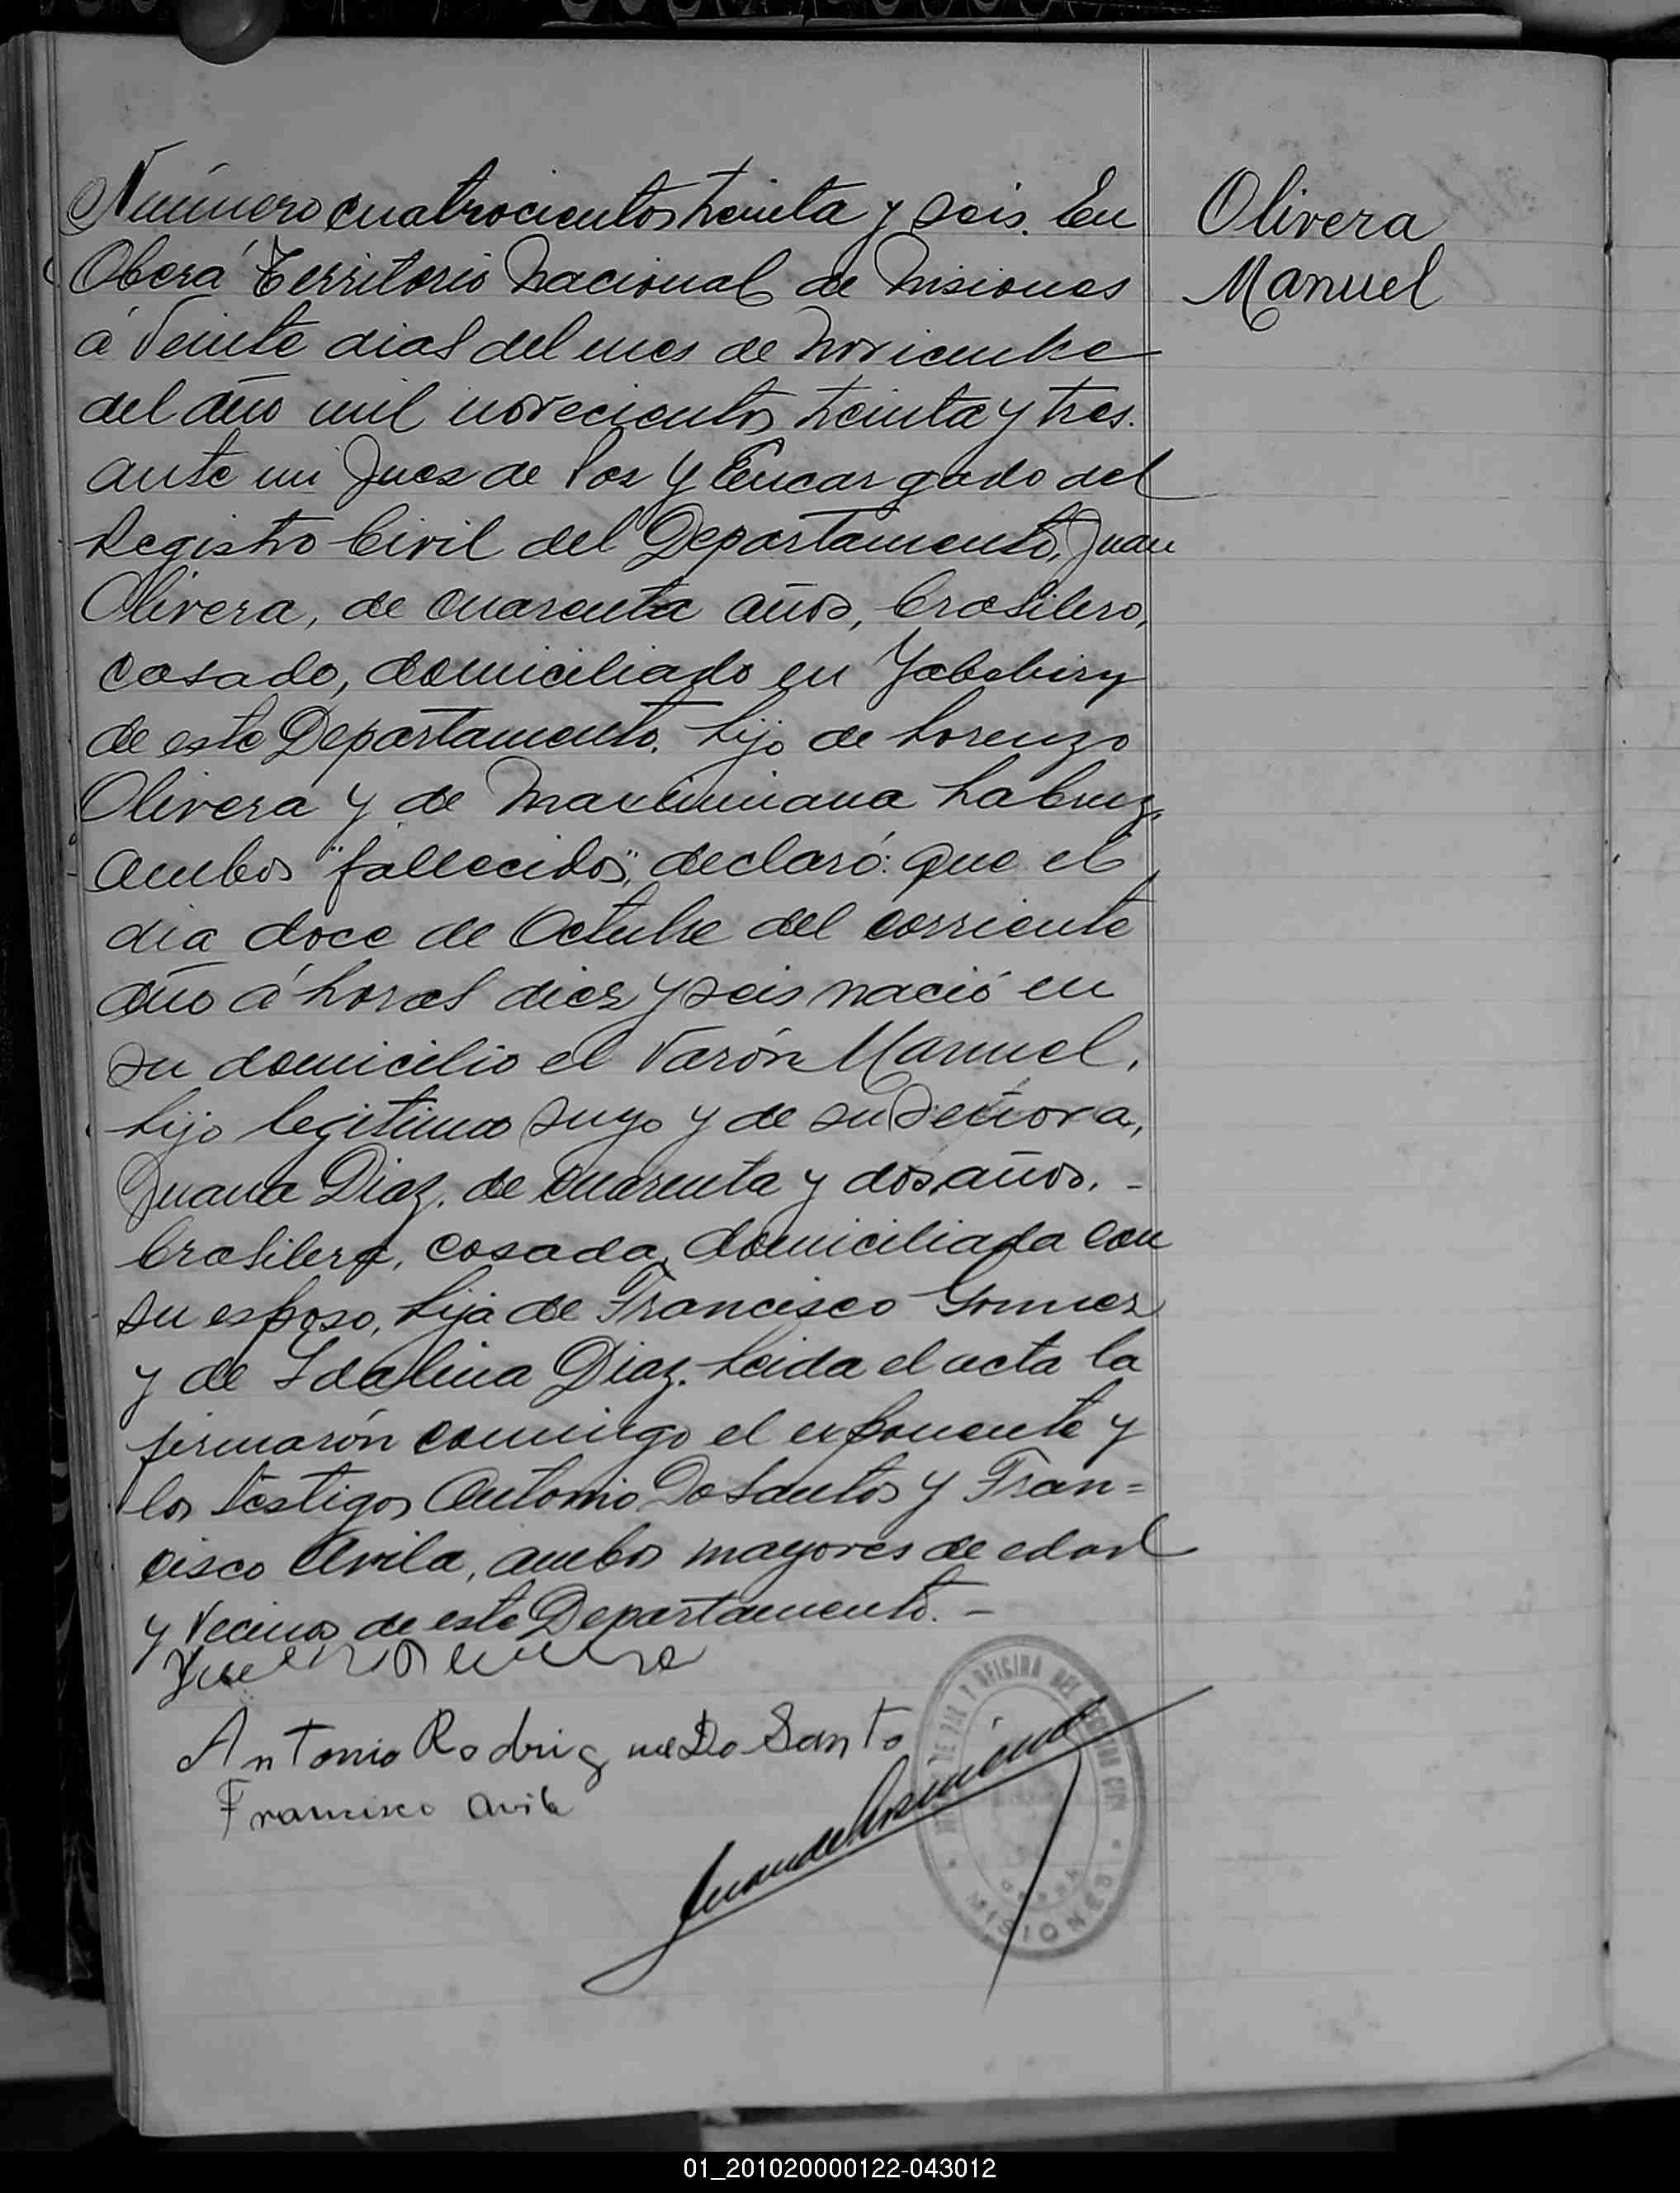 Número cuatrocientos treinta y seis. En
Oberá Territorio Nacional de Misiones
á Veinte dias del mes de Noviembre
del año mil novecientos treinta y tres.
ante mi Juez de Paz y Encargado del
Registro Civil del Departamento, Juan
Olivera, de cuarenta años, brasilero,
casado, domiciliado en Yabebiry
de este Departamento. hijo de Lorenzo
Olivera y de Maximiniana
ambos "fallecidos", declaró: que el
dia doce de Octubre del corriente
año á horas diez y seis nació en
su domicilio el Varón Manuel,
hijo legitimo suyo y de su Señora,
Juana Diaz, de cuarenta y dos años. -
brasilera, casada, domiciliada con
su esposo, hija de Francisco Gomez
y de Idalina Diaz. Leida el acta la
firmarón conmigo el exponente y
los testigos Antonio DoSantos y Fran=
cisco Avila, ambos mayores de edad
y Vecinos de este Departamento. -
Antonio Rodrigue Do Santo
Francisco Avila
Y OFICINA DEL REGISTRO CIVIL
MISIONES
Olivera
Manuel
01_201020000122-043012